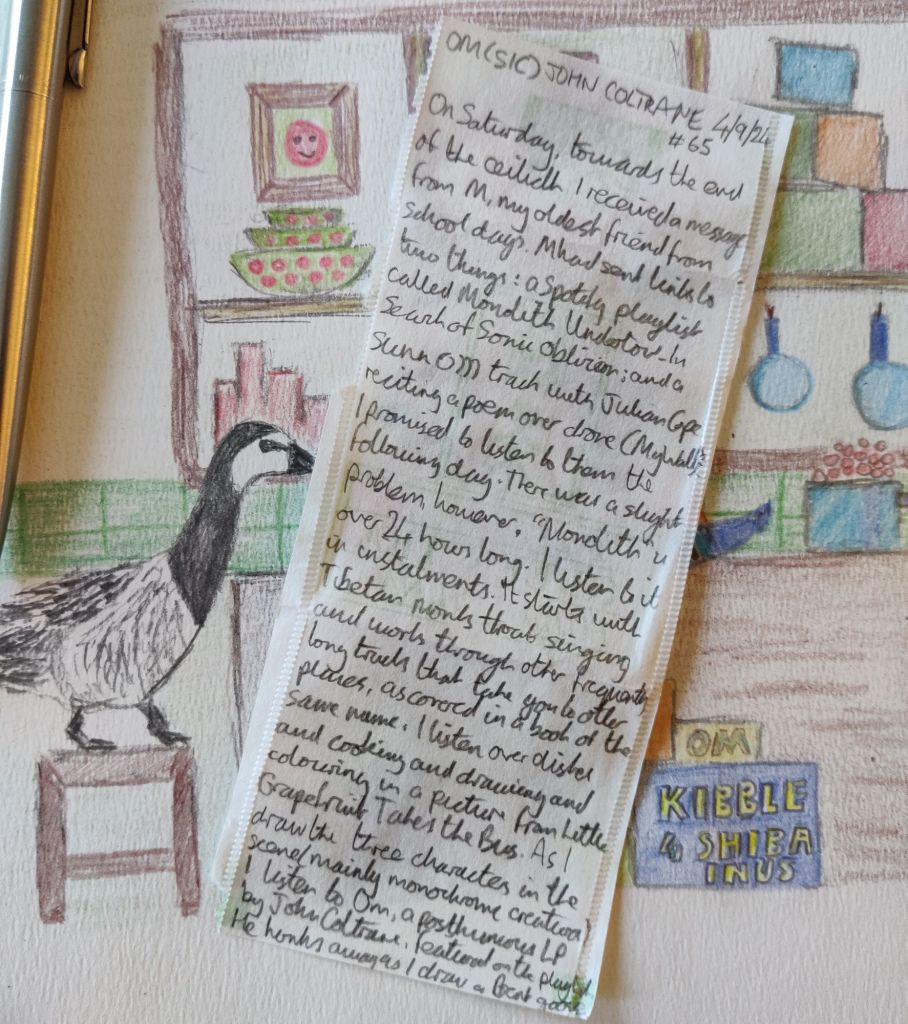 OM (SIC) JOHN COLTRANE 4/9/24
#65
On Saturday, towards the end
of the ceilidh I received a message
from M, my oldest friend from
school days. M had sent links to
two things: a Spotify playlist
called Monolith Undertow - In
Search of Sonic Oblivion; and a
Sunn O))) track with Julian Cope
reciting a poem over drone (My Wall).
I promised to listen to them the
following day. There was a slight
problem, however. "Monolith" is
over 24 hours long. I listen to it
in instalments. It starts with
Tibetan monks throat singing
and works through other frequently
long tracks that take you to other
places, as covered in a book of the
same name. I listen over dishes
and cooking and drawing and
colouring in a picture from Little
Grapefruit Takes the Bus. As I
draw the three characters in the
scene (mainly monochrome creatures)
I listen to Om, a posthumous LP
by John Coltrane, featured on the playlist.
He honks away as I draw a goose
OM
KIBBLE
4 SHIBA
INUS